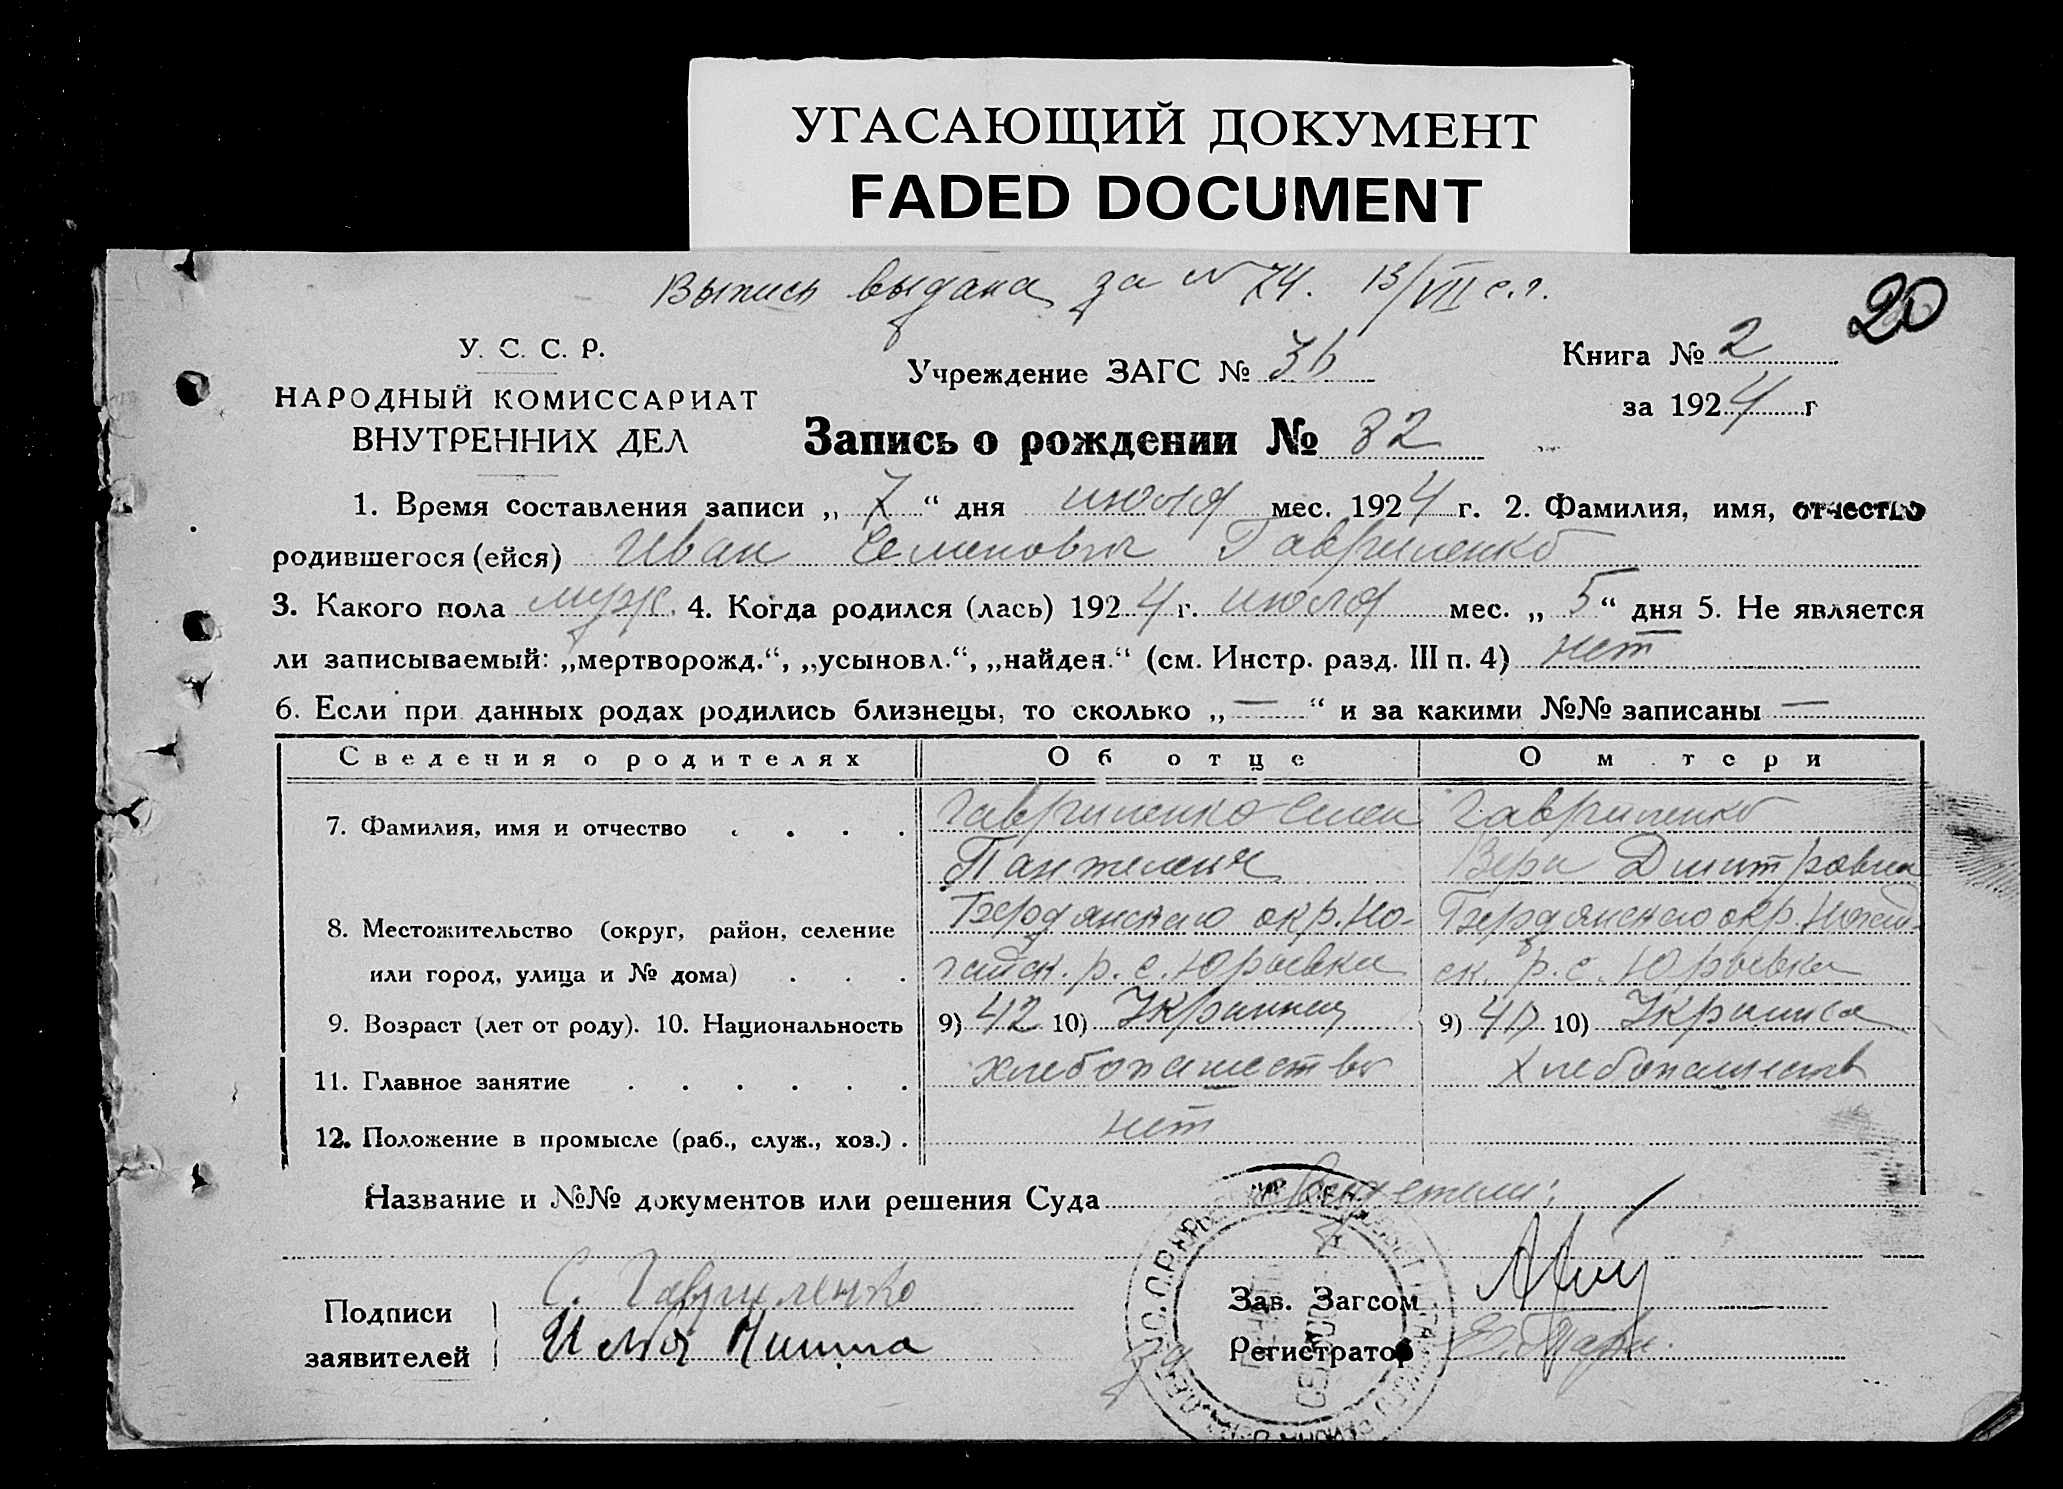 УГАСАЮЩИЙ ДОКУМЕНТ
FADED DOCUMENT
Выпись выдана за N 74. 13/VII с.г.
20
У. С. С. Р.
НАРОДНЫЙ КОМИССАРИАТ
ВНУТРЕННИХ ДЕЛ
Учреждение ЗАГС № 36
Книга № 2
за 1924 г
Запись о рождении № 82
1. Время составления записи „7“ дня июля мес. 1924 г. 2. Фамилия, имя, отчество
родившегося (ейся) Иван Семеновичь Гавриленко
3. Какого пола муж. 4. Когда родился (лась) 1924 г. июля мес. „5“ дня 5. Не является
ли записываемый: „мертворожд.“, „усыновл.“, „найден.“ (см. Инстр. разд. III п. 4) нет
6. Если при данных родах родились близнецы, то сколько „—“ и за какими №№ записаны —
Сведения о родителях Об отце О м тери
7. Фамилия, имя и отчество Гавриленко Семен Гавриленко
Вера Дмитровна
8. Местожительство (округ, район, селение Бердянского окр. Но- Бердянского окр.
или город, улица и № дома) гайск. р. с. Юрьевки ск. р. с. Юрьевка
9. Возраст (лет от роду). 10. Национальность 9) 42 10) Украинец 9) 40 10)
11. Главное занятие хлебопашество
12. Положение в промысле (раб., служ., хоз.) нет
Название и №№ документов или решения Суда Свидетели:
Подписи
заявителей
С. Гавриленко
Илья
Зав. Загсом
Регистратор